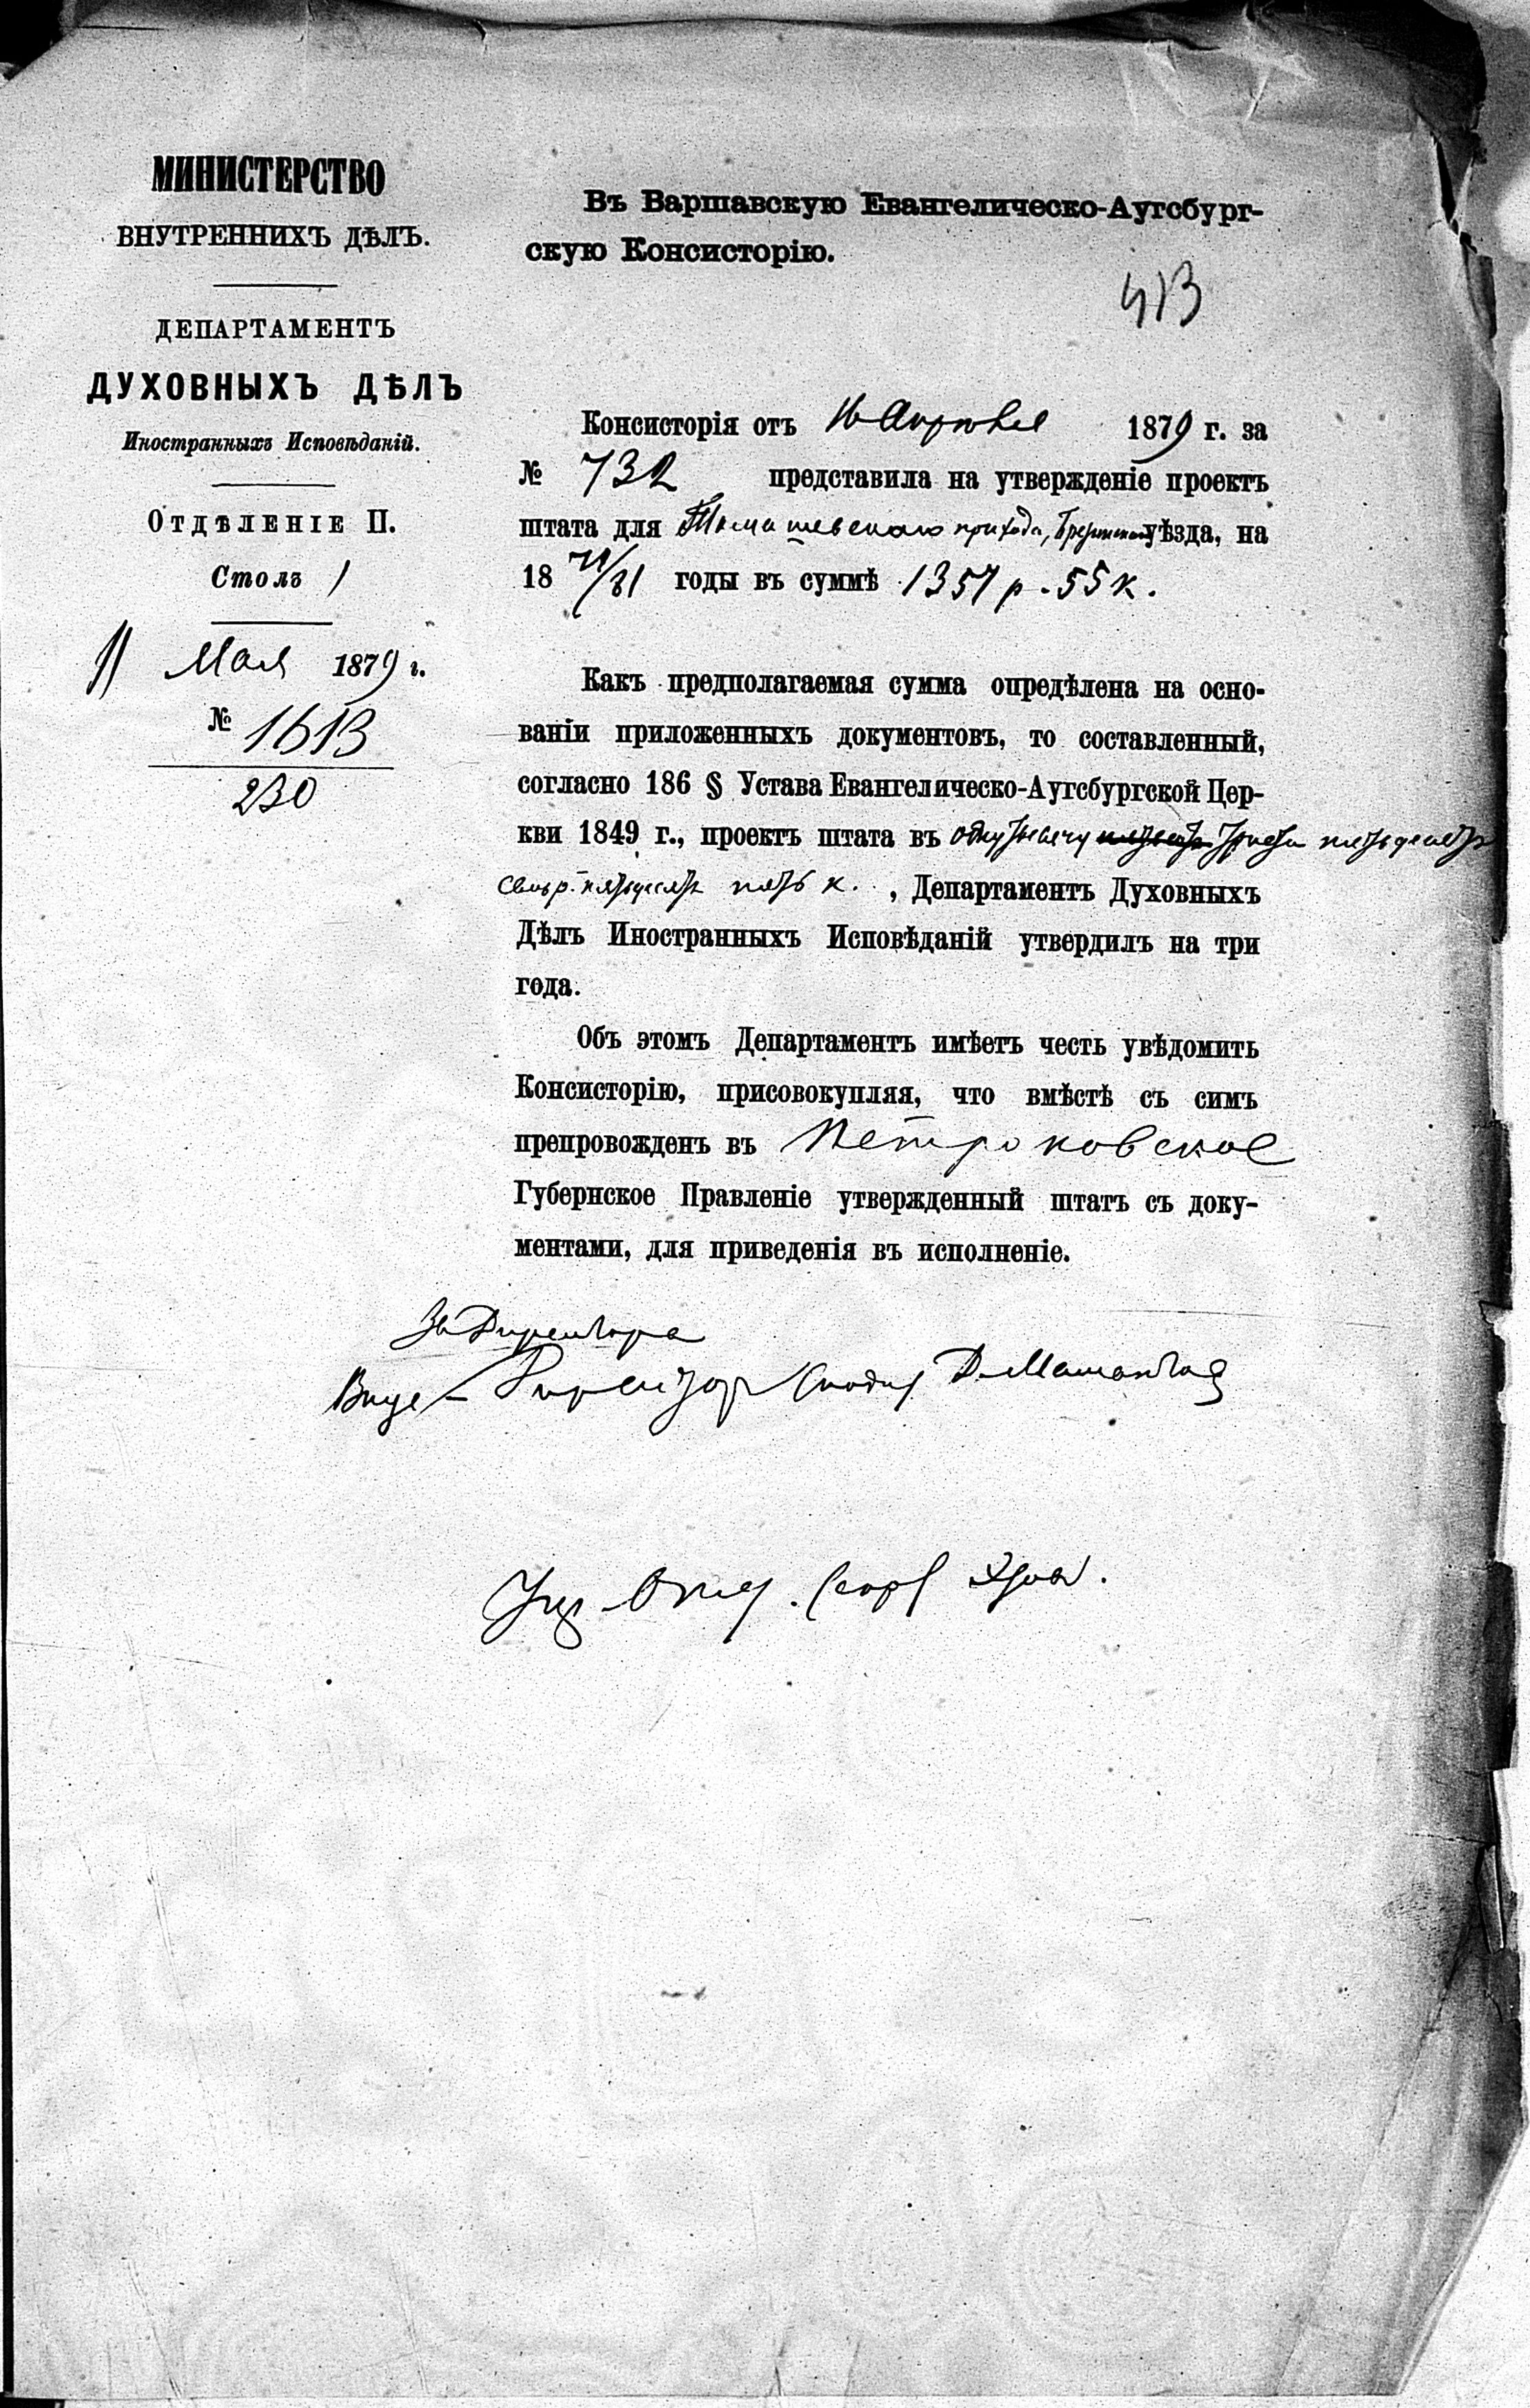 МИНИСТЕРСТВО
ВНУТРЕННИХЪ ДѢЛЪ.
ДЕПАРТАМЕНТЪ
ДУХОВНЫХЪ ДѢЛЪ
Иностранныхъ Исповѣданій.
ОТДѢЛЕНІЕ II.
Столъ 1
11 Мая 1879 г.
№ 1613
230
Въ Варшавскую Евангелическо-Аугсбург-
скую Консисторію.
413
Консисторія отъ Апрѣля 1879 г. за
№ 732 представила на утвержденіе проектъ
штата для Томашевскаго прихода, Брезинскаго уѣзда, на
18 79/81 годы въ суммѣ 1357 р. 55 к.
Какъ предполагаемая сумма опредѣлена на осно-
ваніи приложенныхъ документовъ, то составленный,
согласно 186 § Устава Евангелическо-Аугсбургской Цер-
кви 1849 г., проектъ штата въ одну тысячу триста пятьдесятъ
семь р. пятьдесятъ пять к. , Департаментъ Духовныхъ
Дѣлъ Иностранныхъ Исповѣданій утвердилъ на три
года.
Объ этомъ Департаментъ имѣетъ честь увѣдомить
Консисторію, присовокупляя, что вмѣстѣ съ симъ
препровожденъ въ Петроковское
Губернское Правленіе утвержденный штатъ съ доку-
ментами, для приведенія въ исполненіе.
За Директора
Вице-Директоръ